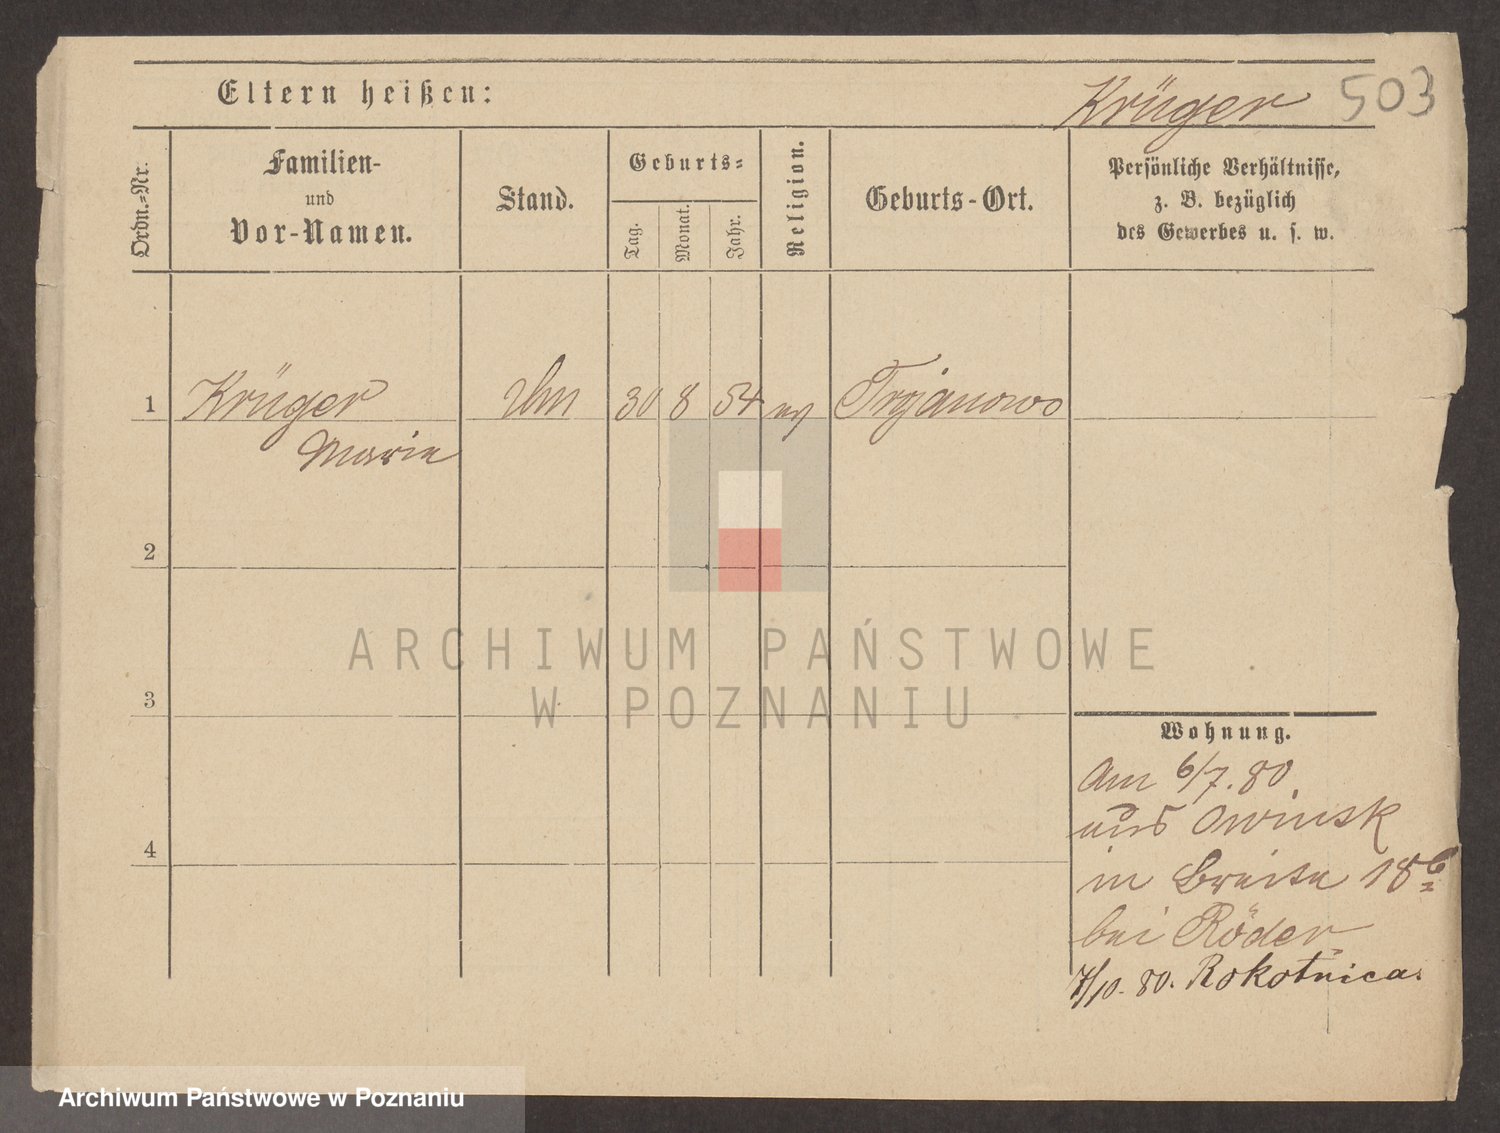 Eltern heißen:
Krüger 503
Ordn.-Nr.
Familien-
und
Vor-Namen.
Stand.
Geburts-
Tag.
Monat.
Jahr.
Religion.
Geburts-Ort.
Persönliche Verhältnisse,
z. B. bezüglich
des Gewerbes u. s. w.
1 Krüger 30 8 54 ev Trojanowo
Marie
2
3
4
Wohnung.
Am 6/7. 80
aus Owinsk
in Breite 18b
bei Röder
7/10. 80. Rokotnica.
ARCHIWUM PAŃSTWOWE
W POZNANIU
Archiwum Państwowe w Poznaniu